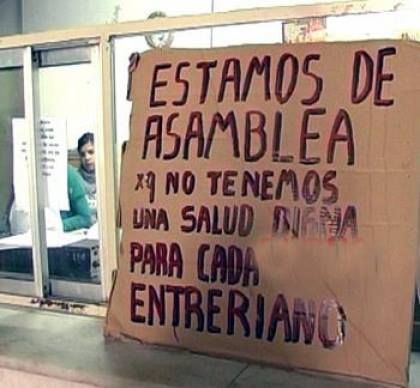 ESTAMOS DE
ASAMBLEA
xq NO TENEMOS
UNA SALUD DIGNA
PARA CADA
ENTRERIANO